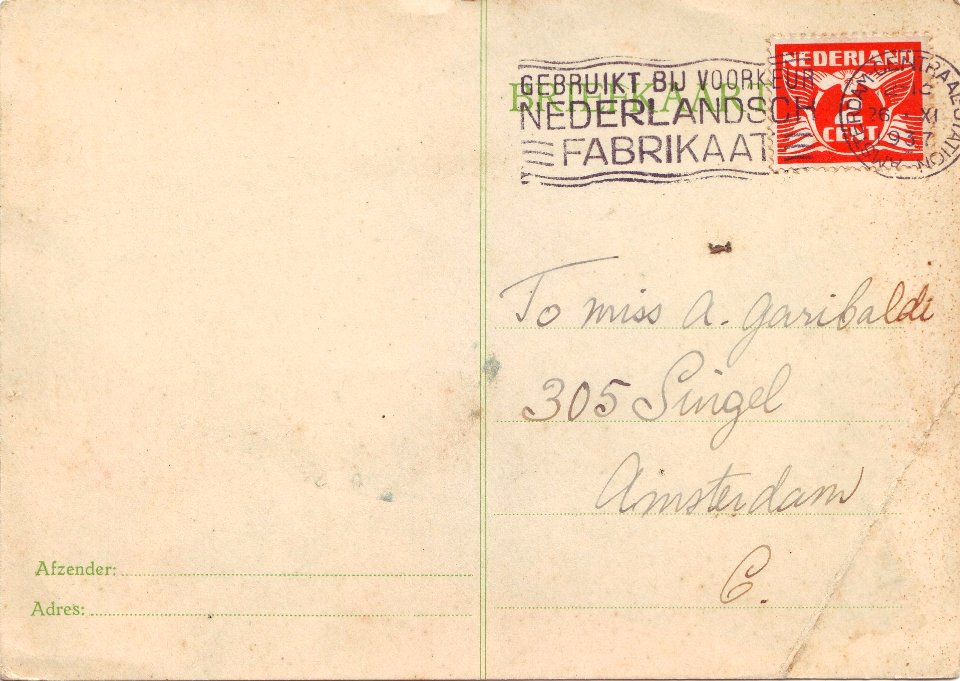 BRIEFKAART
GEBRUIKT BIJ VOORKEUR
NEDERLANDSCH
FABRIKAAT
NEDERLAND
2
CENT
AMSTERDAM-CENTRAAL STATION
XI
To miss A. Garibaldi
305 Singel
Amsterdam
C.
Afzender:
Adres: